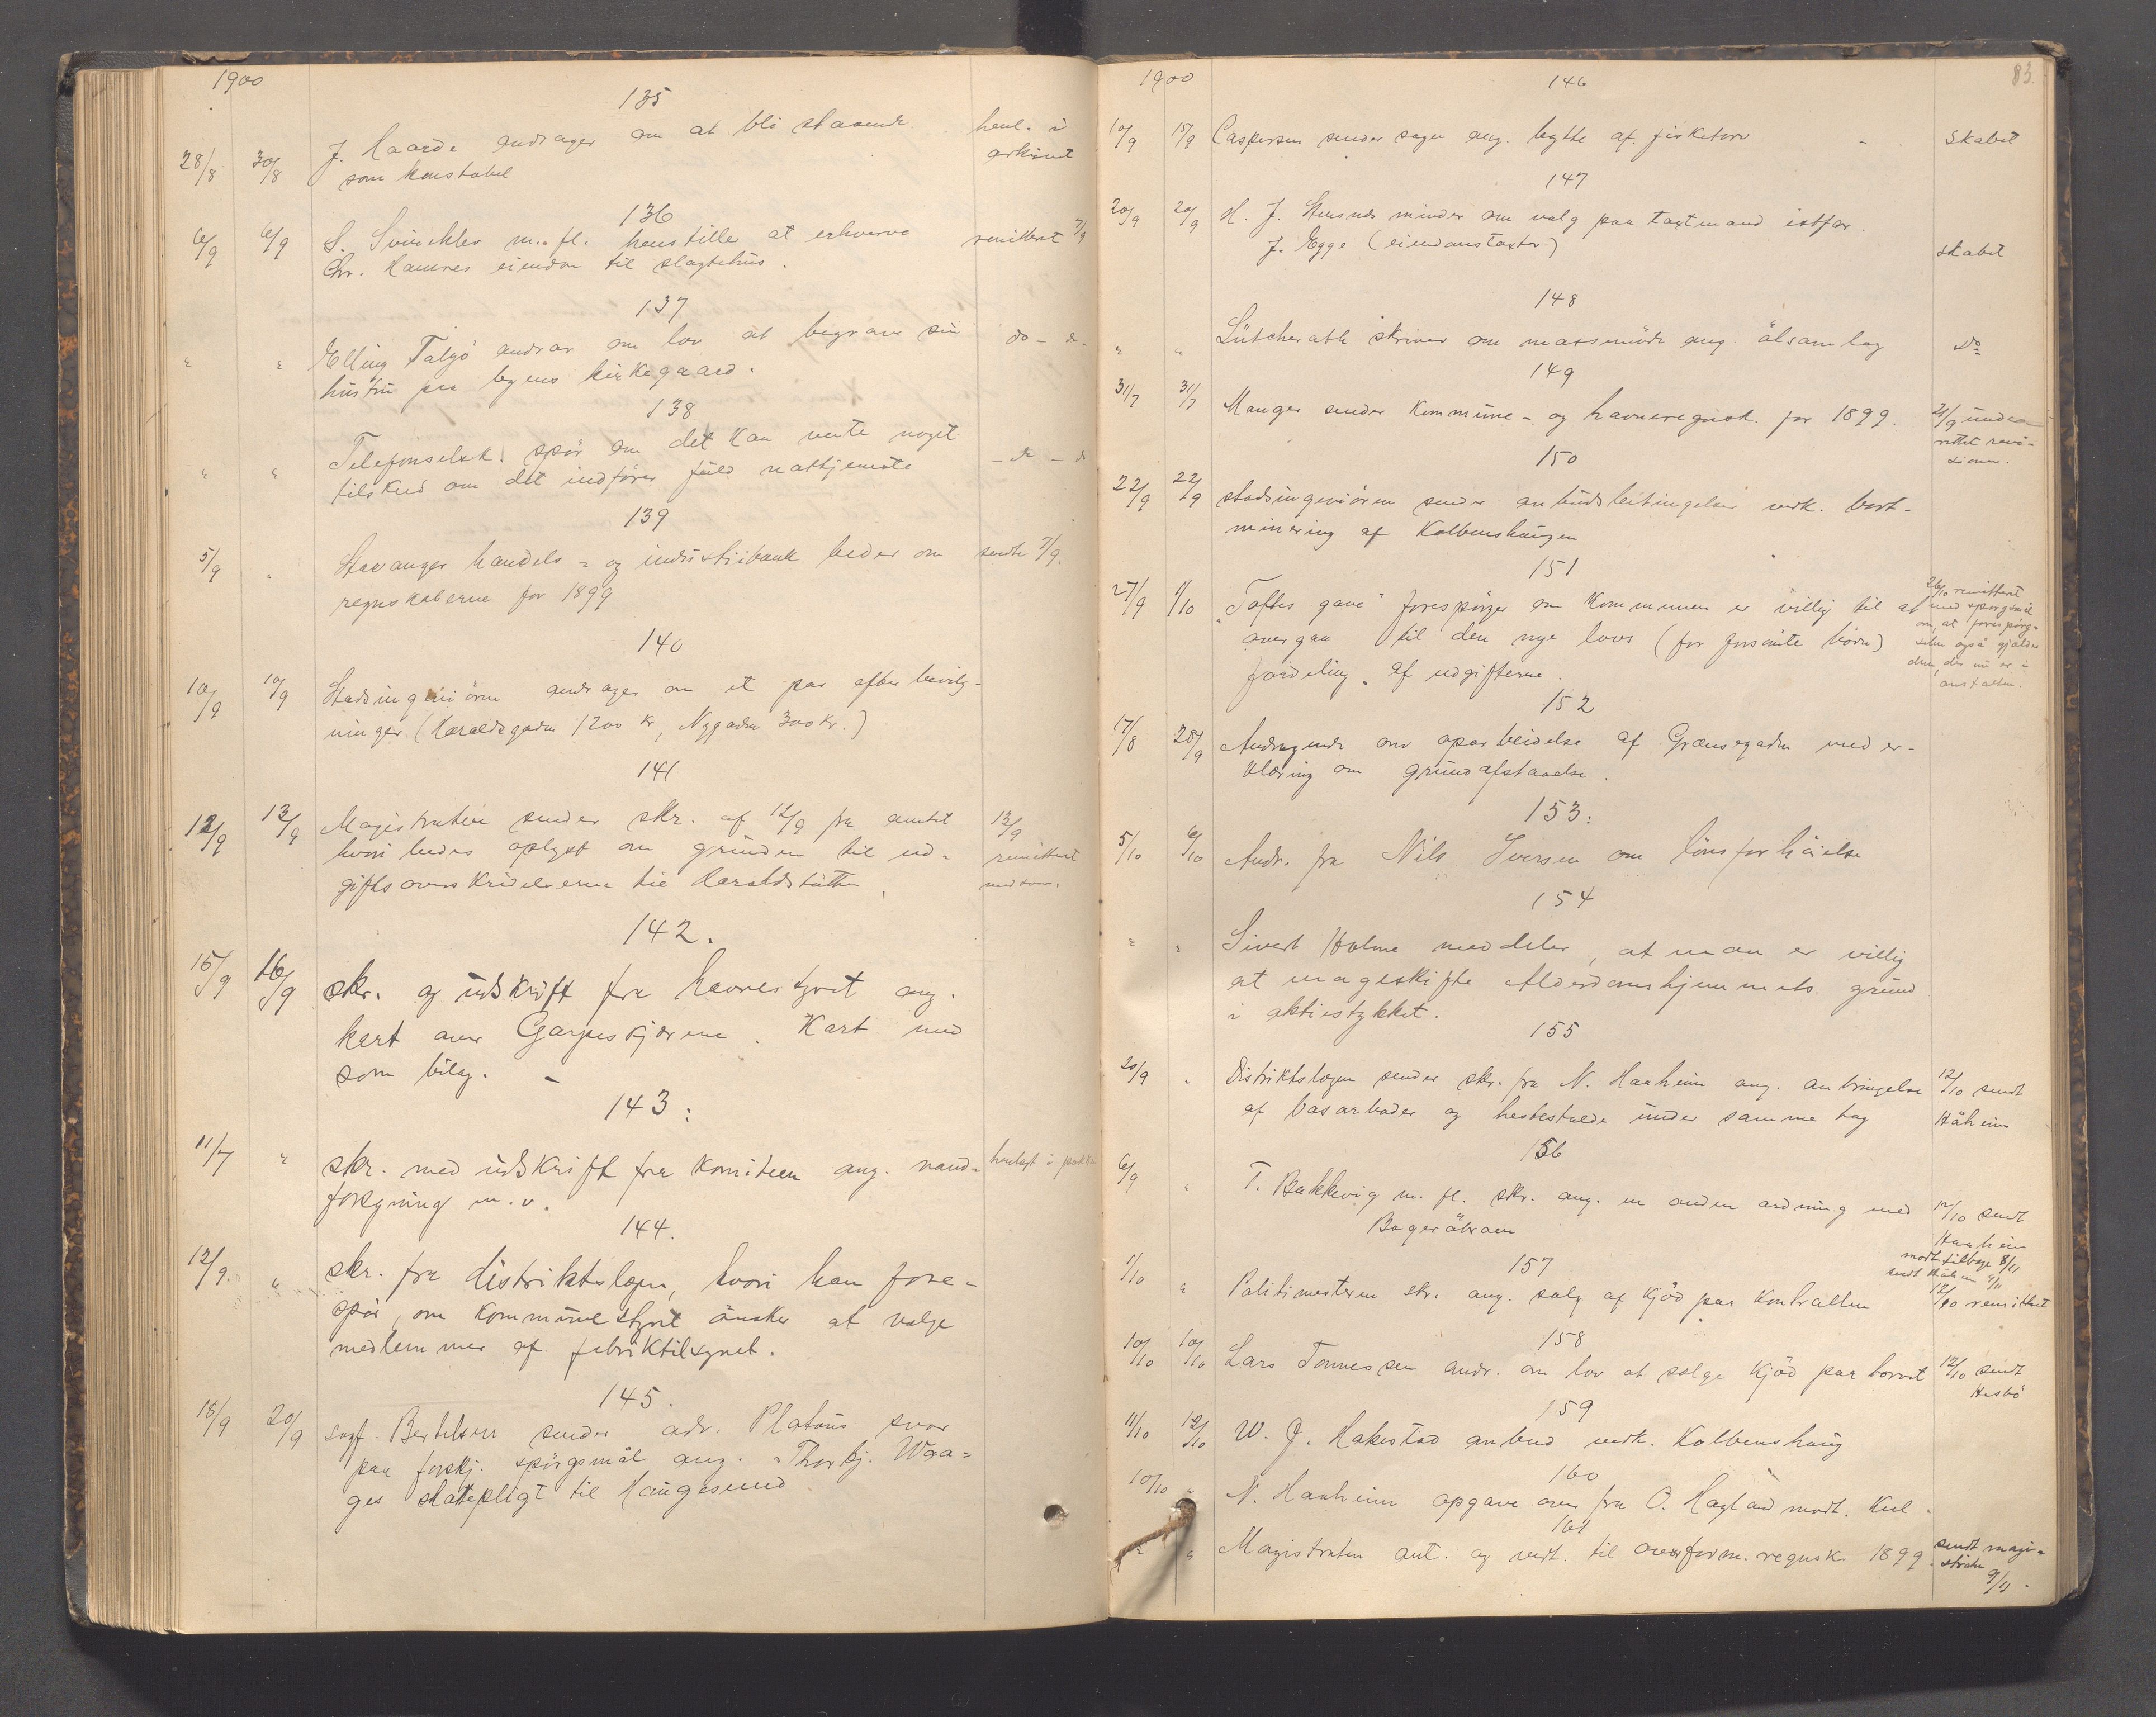 1900
135
28/8 30/8 J. Haarde andrager om at bli staaende henl. i
som konstabel arkivet
136
6/9 6/9 S. Svinchler m. fl. henstiller at erhverve remittert 7/9
Chr. Hannes eiendom til slagtehus.
137
" " Elling Talgö andrar om lov at begrave sin do - do -
hustru paa byens kirkegaard.
138
" " Telefonselsk. spör om det kan vente noget - do - do
tilskud om det indförer fuld nattjeneste
139
5/9 " Stavanger handels- og industribank beder om sendt 7/9.
regnskaberne for 1899
140
10/9 10/9 Stadsingeniören andrager om et par efterbevilg-
ninger (Haraldsgaden 1200 kr, Nygaden 300 kr.)
141
12/9 13/9 Magistraten sender skr. af 12/9 fra amtet 13/9
hvori bedes oplyst om grunden til ud- remittert
giftsoverskridelserne til Haraldstötten, med svar.
142.
15/9 16/9 skr. og udskrift fra havnestyret ang.
kart over Garpeskjærene. Kart med
som bilag. -
143:
11/7 " skr. med udskrift fra komiteen ang. vand- henlagt i pakke
forsyning m. v.
144.
12/9. " skr. fra distriktslægen, hvori han fore-
spör, om kommunestyret önsker at vælge
medlemmer af fabriktilsynet.
145.
18/9 20/9 sagf. Bertelsen sender adv. Platous svar
paa forskj. spörgsmål ang. Thorbj. Waa-
ges skattepligt til Haugesund
1900 83.
146
10/9 15/9 Caspersen sender sagen ang. bytte af fisketorv skabet
147
20/9 20/9 H. J. Stensnes minder om valg paa taxtmand istfor.
J. Egge (eiendomstaxter) skabet
148
" " Lütcherath skriver om massemöde ang. ölsamlag do
149
31/7 31/7 Manger sender kommune- og havneregnsk. for 1899. 21/9 under-
rettet revi-
sionen.
150
22/9 22/9 stadsingeniören sender anbudsbetingelser vedk. bort-
minering af Kolbenshaugen
151
27/9 1/10 "Toftes gave" forespörger om kommunen er villig til at
overgaa til den nye lovs (for forsömte börn)
fordeling af udgifterne.
26/10 remittert
med spörgsmål
om, at forespörg-
selen også gjælder
dem, der nu er i
anstalten.
152
17/8 28/9 Andragende om oparbeidelse af Grænsegaden med er-
klæring om grundafstaaelse.
153:
5/10 6/10 Andr. fra Nils Iversen om lönsforhöielse
154
" " Sivert Holme meddeler, at man er villig
at mageskifte Alderdomshjemmets grund
i aktiestykket.
155
20/9 " Distriktslægen sender skr. fra N. Haaheim ang. anbringelse 12/10 sendt
af basarboder og hestestalde under samme tag Håheim
156
6/9 " T. Bakkevig m. fl. skr. ang. en anden ordning med 12/10 sendt
Bageråbraen Haaheim
modt. tilbage 8/11
sendt Håheim 9/11
157
1/10 " Politimesteren skr. ang. salg af kjöd paa kontrallen 12/10 remittert
158
10/10 10/10 Lars Tönnessen andr. om lov at sælge kjöd paa torvet 12/10 sendt
Husbö
159
11/10 12/10 W. J. Hakestad anbud vedk. Kolbenshaug
160
10/10 " N. Haaheim opgave over fra O. Hagland modt. Kul.
161
" " Magistraten ant. og vedt. til overform. regnsk. 1899. sendt magi-
straten
9/11.